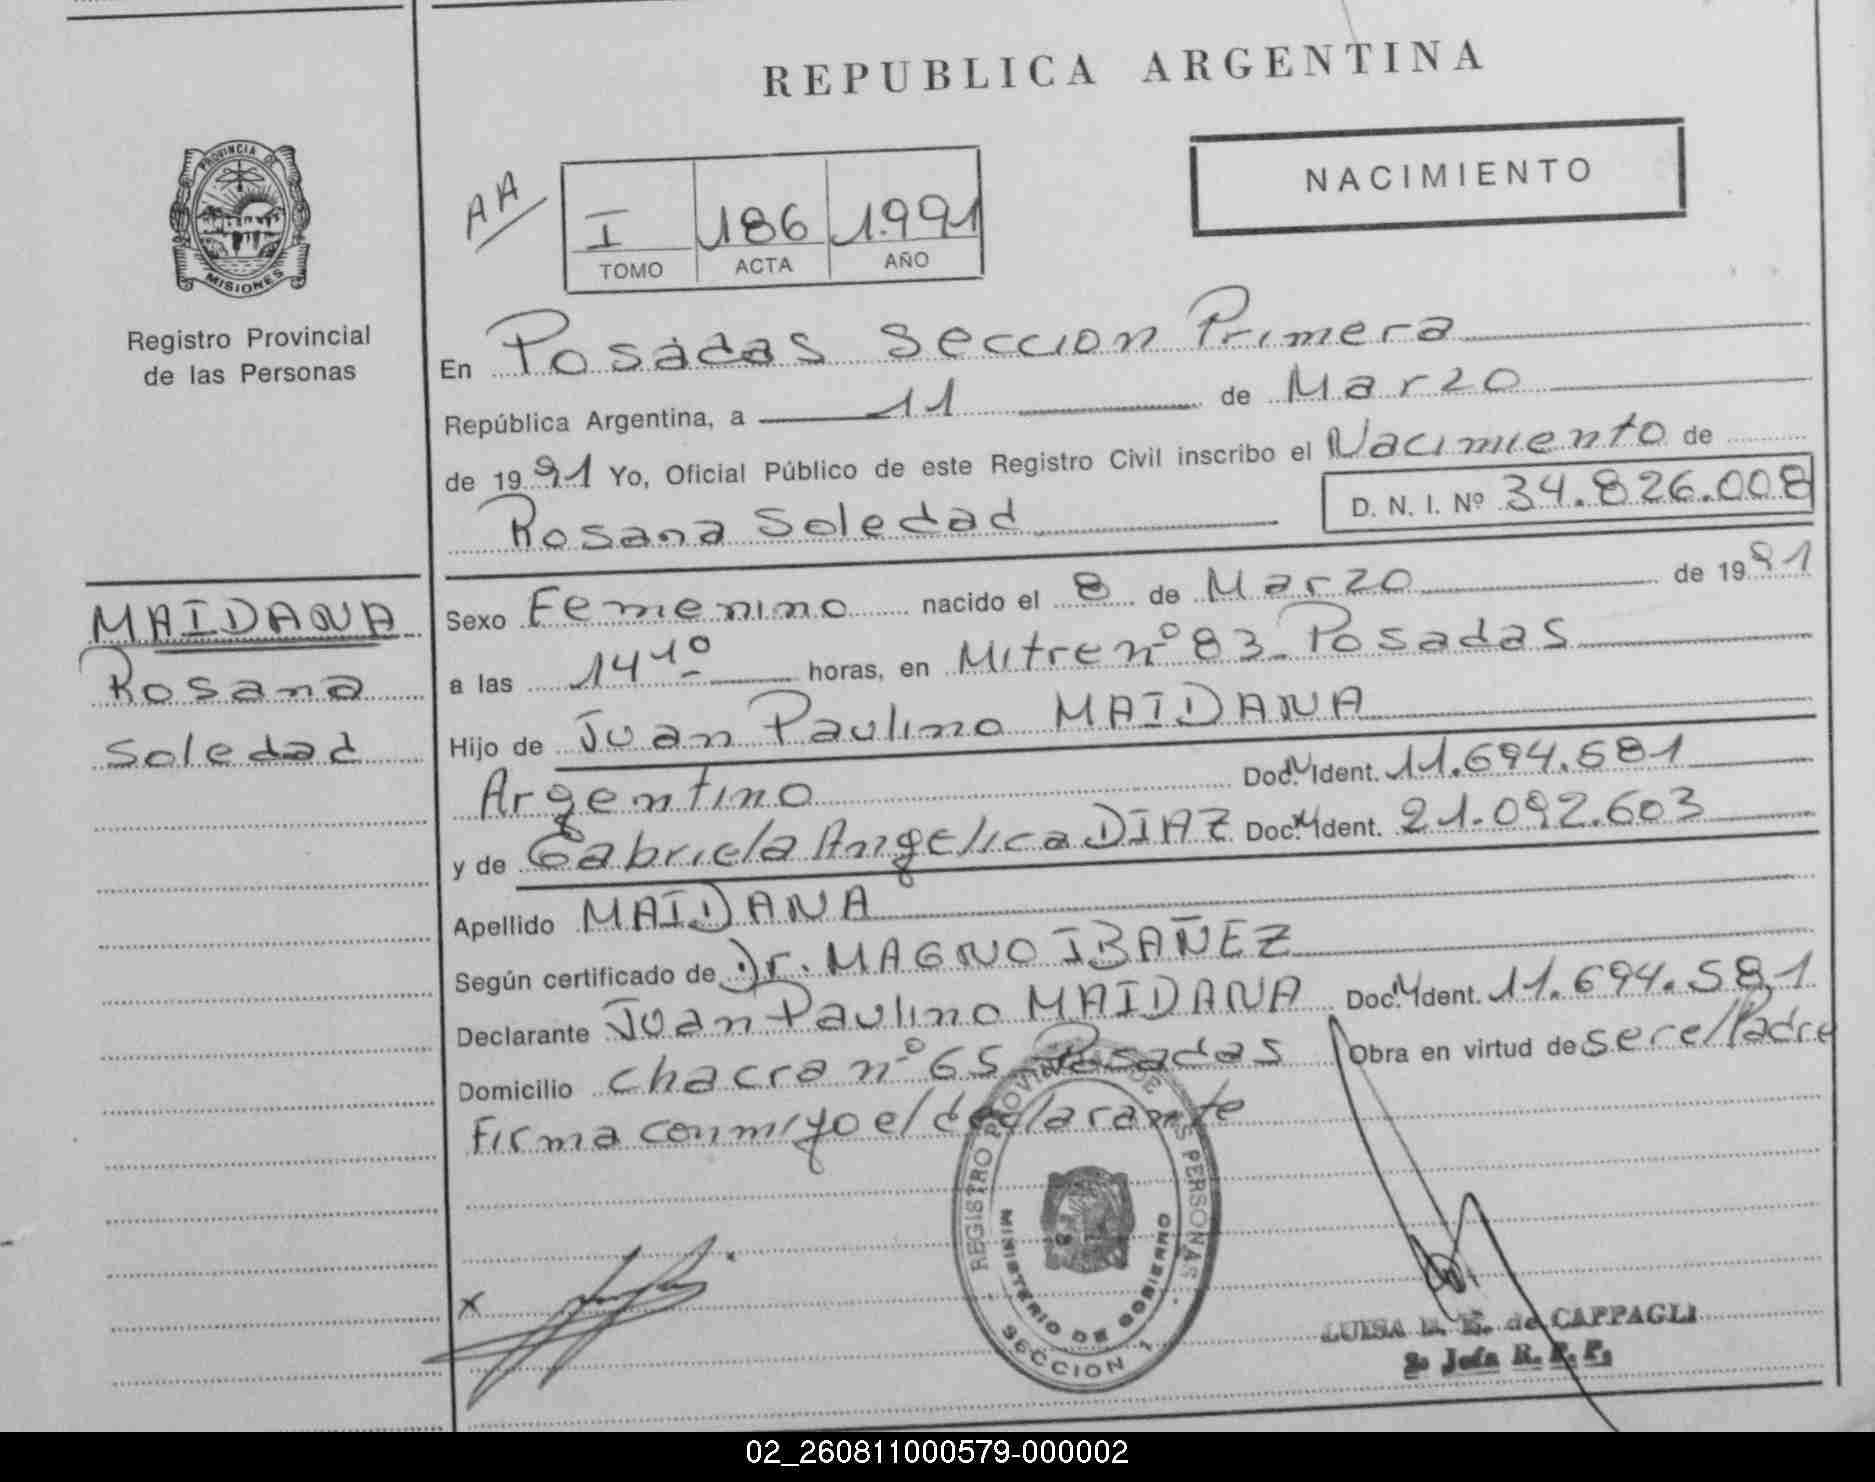 REPUBLICA ARGENTINA
PROVINCIA DE
MISIONES
Registro Provincial
de las Personas
AA
NACIMIENTO
I 186 1.991
TOMO ACTA AÑO
En Posadas Seccion Primera
República Argentina, a 11 de Marzo
de 1991 Yo, Oficial Público de este Registro Civil inscribo el Nacimiento de
Rosana Soledad D. N. I. Nº 34.826.008
MAIDANA
Rosana
Soledad
Sexo Femenino nacido el 8 de Marzo de 1991
a las 14 10 horas, en Mitre nº 83 - Posadas
Hijo de Juan Paulino MAIDANA
Argentino Doc. Ident. 11.694.581
y de Gabriela Angelica DIAZ Doc. Ident. 21.092.603
Apellido MAIDANA
Según certificado de Dr. MAGNO IBAÑEZ
Declarante Juan Paulino MAIDANA Doc. Ident. 11.694.581
Domicilio chacra nº 65 - Posadas Obra en virtud de ser el Padre
Firma conmigo el declarante
REGISTRO PROVINCIAL DE LAS PERSONAS
MINISTERIO DE GOBIERNO
SECCION 1
X
LUISA E. de CAPPAGLI
2º Jefa R. P. P.
02_260811000579-000002